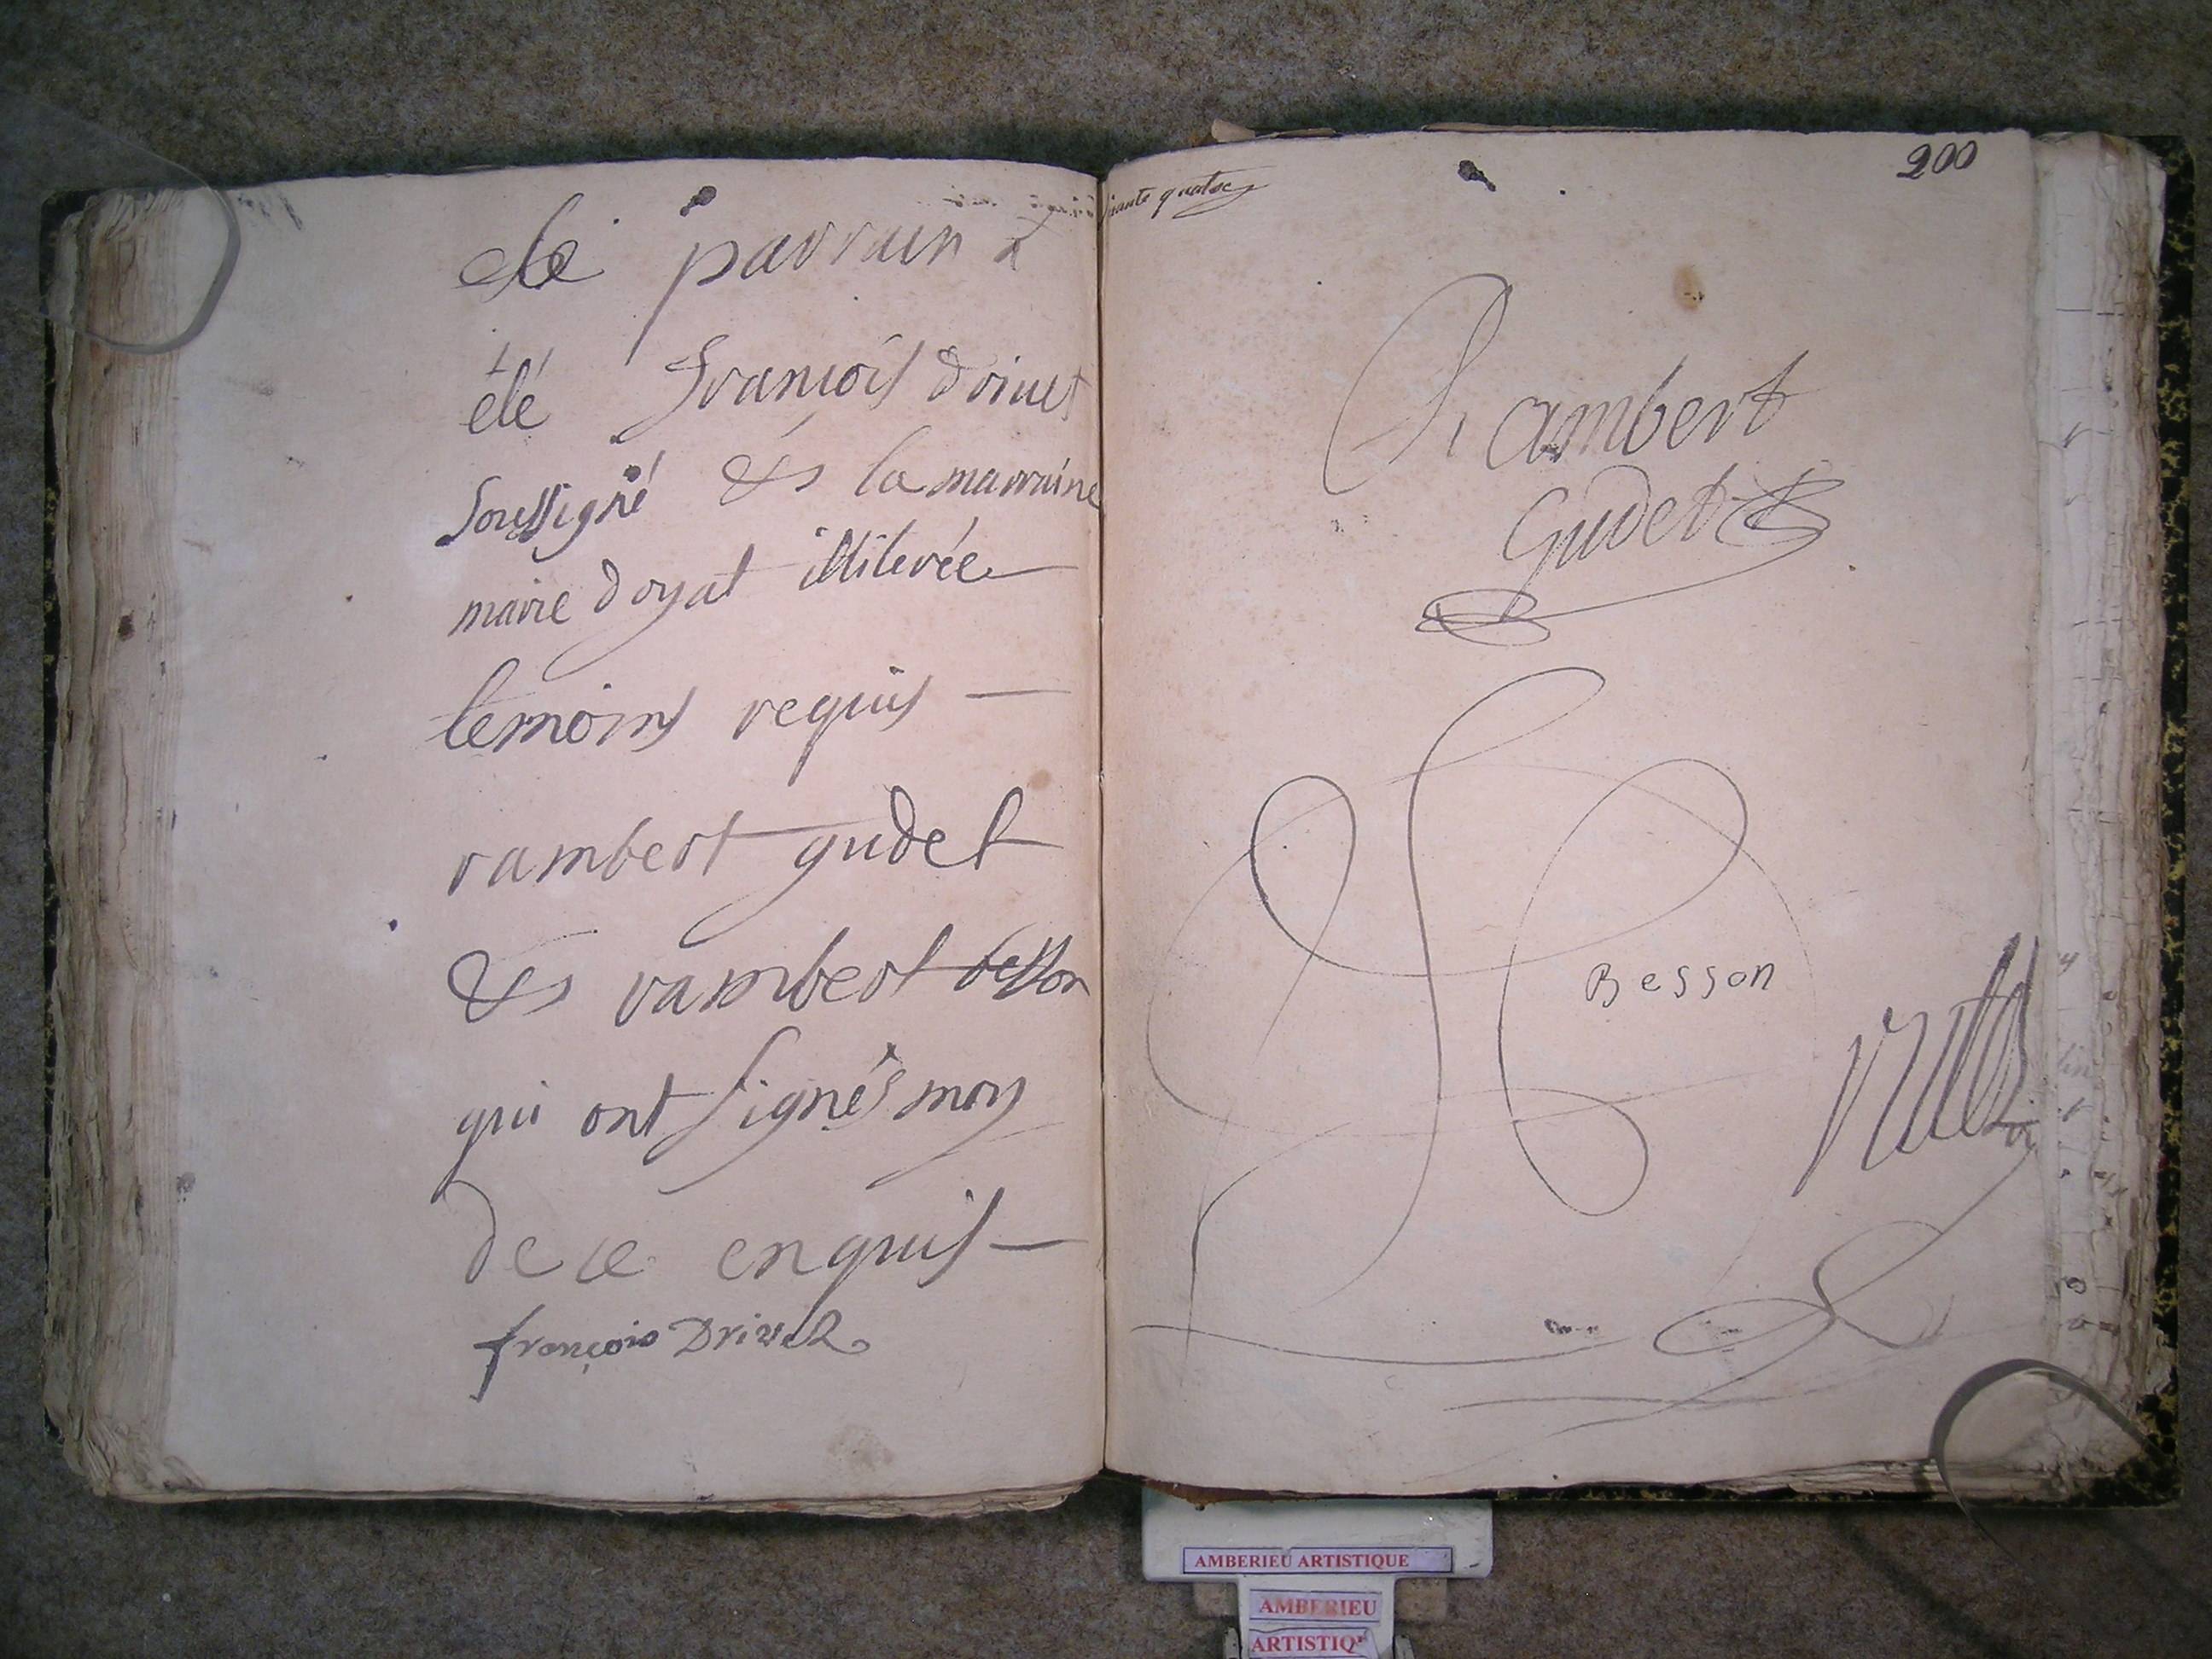 le parrain a
été françois drivet
soussigné & la marraine
marie doyat illiterée
temoins requis
rambert gudet
& rambert besson
qui ont signés moy
de ce enquis
françois Drivet
200
quatre
Rambert
Gudet
Besson
AMBERIEU ARTISTIQUE
AMBERIEU
ARTISTIQ